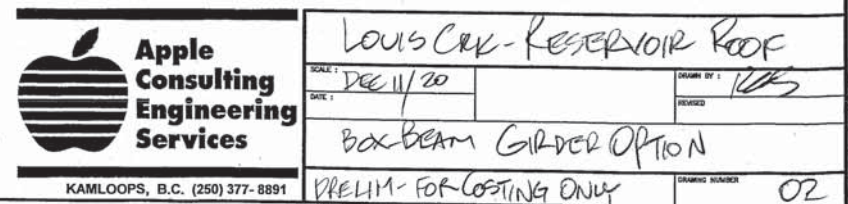 Apple
Consulting
Engineering
Services
KAMLOOPS, B.C. (250) 377-8891
LOUIS CRK - RESERVOIR ROOF
SCALE :
DEC 11/20
DATE :
DRAWN BY :
REVISED
BOX BEAM GIRDER OPTION
PRELIM - FOR COSTING ONLY
DRAWING NUMBER
02